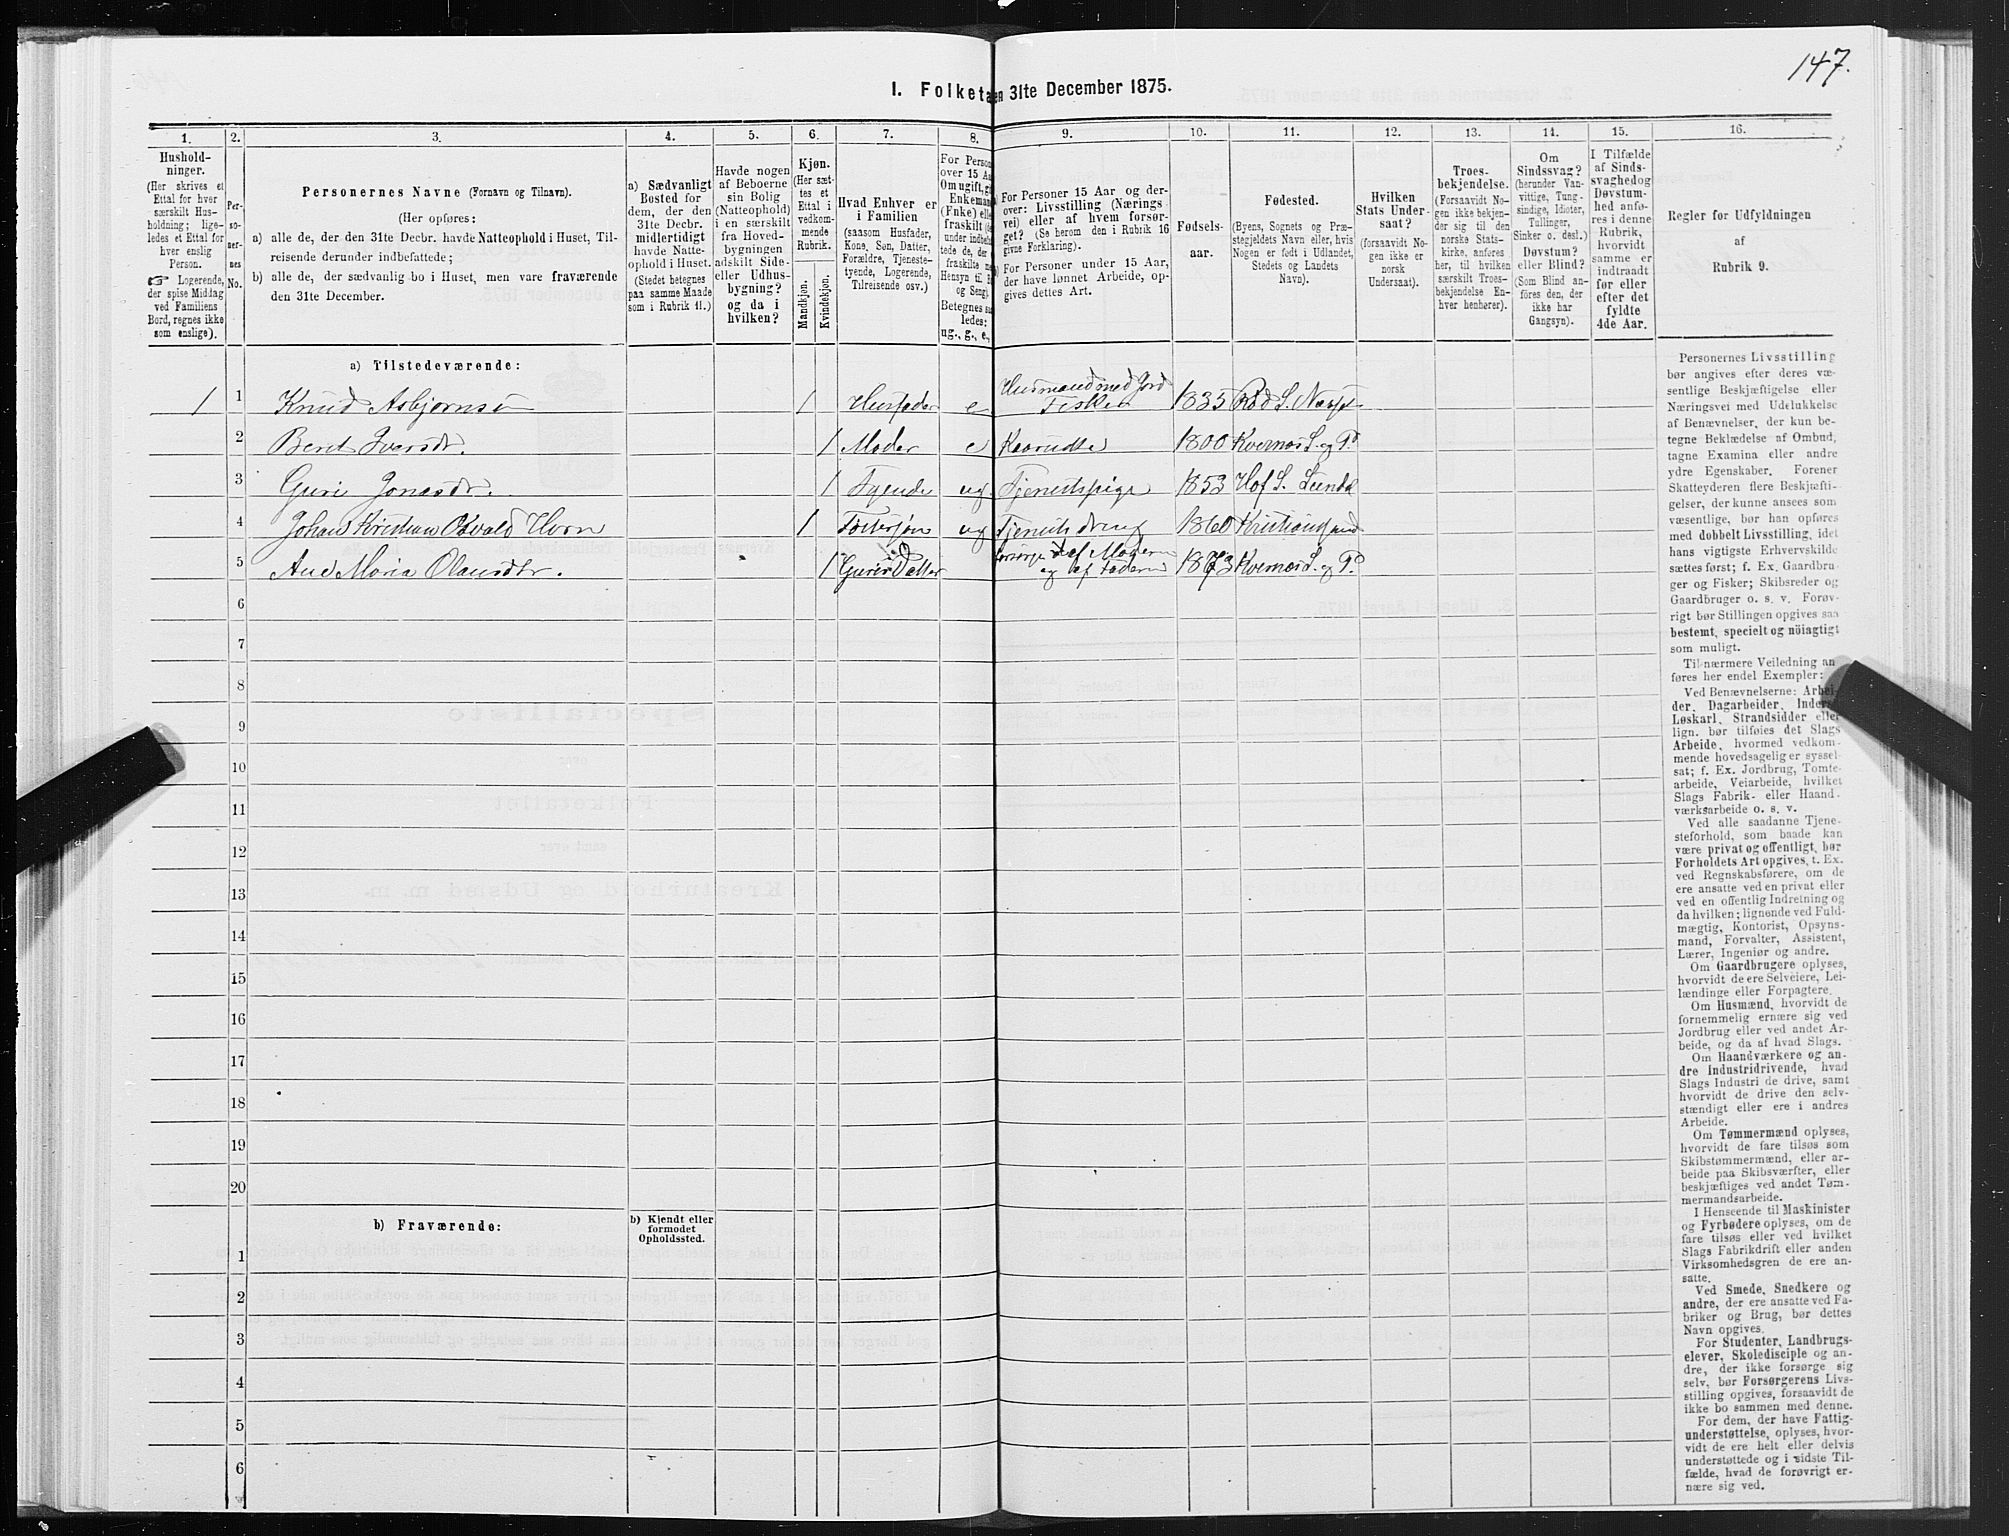 147.
I. Folketa en 31te December 1875.
1. 2. 3. 4. 5. 6. 7. 8. 9. 10. 11. 12. 13. 14. 15. 16.
Hushold-
ninger.
(Her skrives et
Ettal for hver
særskilt Hus-
holdning; lige-
ledes et Ettal for
hver enslig
Person.
☞ Logerende,
der spise Middag
ved Familiens
Bord, regnes ikke
som enslige).
Per-
so-
ner-
nes
No.
Personernes Navne (Fornavn og Tilnavn).
(Her opføres:
a) alle de, der den 31te Decbr. havde Natteophold i Huset, Til-
reisende derunder indbefattede;
b) alle de, der sædvanlig bo i Huset, men vare fraværende
den 31te December.
a) Sædvanligt
Bosted for
dem, der den
31te Decbr.
midlertidigt
havde Natte-
ophold i Huset.
(Stedet betegnes
paa samme Maade
som i Rubrik 11.)
Havde nogen
af Beboerne
sin Bolig
(Natteophold)
i en særskilt
fra Hoved-
bygningen
adskilt Side-
eller Udhus-
bygning?
og da i
hvilken?
Kjøn.
(Her sæt-
tes et
Ettal i
vedkom-
mende
Rubrik.
Mandkjøn.
Kvindekjøn.
Hvad Enhver er
i Familien
(saasom Husfader,
Kone, Søn, Datter,
Forældre, Tjeneste-
tyende, Logerende,
Tilreisende osv.)
For Person
over 15 Aa
Om ugift, gi
Enkeman
(Enke) elle
fraskilt (de
under indbefa
tede de, der
fraskilte me
Hensyn til B
og Seng).
Betegnes saa
ledes:
ug., g., e.,
For Personer 15 Aar og der-
over: Livsstilling (Nærings
vei) eller af hvem forsør-
get? (Se herom den i Rubrik 16
givne Forklaring).
For Personer under 15 Aar,
der have lønnet Arbeide, op-
gives dettes Art.
Fødsels-
aar.
Fødested.
(Byens, Sognets og Præ-
stegjeldets Navn eller, hvis
Nogen er født i Udlandet,
Stedets og Landets
Navn).
Hvilken
Stats Under-
saat?
(forsaavidt No-
gen ikke er
norsk
Undersaat).
Troes-
bekjendelse.
(Forsaavidt No-
gen ikke bekjen-
der sig til den
norske Stats-
kirke, anføres
her, til hvilken
særskilt Troes-
bekjendelse En-
hver henhører).
Om
Sindssvag?
(herunder Van-
vittige, Tung-
sindige, Idioter,
Tullinger,
Sinker o. desl.)
Døvstum?
eller Blind?
(Som Blind an-
føres den, der
ikke har
Gangsyn).
I Tilfælde
af Sinds-
svaghed og
Døvstum-
hed anfø-
res i denne
Rubrik,
hvorvidt
samme er
indtraadt
før eller
efter det
fyldte
4de Aar.
Regler for Udfyldningen
af
Rubrik 9.
a) Tilstedeværende:
1 1 Knud Asbjørnsen 1 Husfader e Husmand med Jord
Fisker 1835 Rød S. Næsset
2 Beret Iversdr. 1 Moder e Kaarudte 1800 Kvernes S. og P.
3 Guri Jonasdr. 1 Tyende ug Tjenestpige 1853 Hof S. Sundal
4 Johan Kristian Osvald Horn 1 Fostersøn ug Tjenestdreng 1860 Kristiansund
5 Ane Maria Olausdtr. 1 Guris Datter forsørges af Moderen
og af Faderen 1873 Kvernes S. og P.
6
7
8
9
10
11
12
13
14
15
16
17
18
19
20
b) Fraværende:
b) Kjendt eller
formodet
Opholdssted.
1
2
3
4
5
6
Personernes Livsstilling
bør angives efter deres væ-
sentlige Beskjæftigelse eller
Næringsvei med Udelukkelse
af Benævnelser, der kun be-
tegne Beklædelse af Ombud,
tagne Examina eller andre
ydre Egenskaber. Forener
Skatteyderen flere Beskjæfti-
gelser, der kunne ansees som
væsentlige, bør han opføres
med dobbelt Livsstilling, idet
hans vigtigste Erhvervskilde
sættes først; f. Ex. Gaardbru-
ger og Fisker; Skibsreder og
Gaardbruger o. s. v. Forøv-
rigt bør Stillingen opgives saa
bestemt, specielt og nöiagtigt
som muligt.
Til nærmere Veiledning an
føres her endel Exempler:
Ved Benævnelserne: Arbei-
der, Dagarbeider, Inderst,
Løskarl, Strandsidder eller
lign. bør tilføies det Slags
Arbeide, hvormed vedkom-
mende hovedsagelig er syssel-
sat; f. Ex. Jordbrug, Tomte-
arbeide, Veiarbeide, hvilket
Slags Fabrik- eller Haand-
værksarbeide o. s. v.
Ved alle saadanne Tjene-
steforhold, som baade kan
være privat og offentligt, bør
Forholdets Art opgives, t. Ex.
ved Regnskabsførere, om de
ere ansatte ved en privat eller
ved en offentlig Indretning og
da hvilken; lignende ved Fuld-
mægtig, Kontorist, Opsyns-
mand, Forvalter, Assistent,
Lærer, Ingeniør og andre.
Om Gaardbrugere oplyses,
hvorvidt de ere Selveiere, Lei-
lændinge eller Forpagtere.
Om Husmænd, hvorvidt de
fornemmelig ernære sig ved
Jordbrug eller ved andet Ar-
beide, og da af hvad Slags.
Om Haandværkere og an-
dre Industridrivende, hvad
Slags Industri de drive, samt
hvorvidt de drive den selv-
stændigt eller ere i andres
Arbeide.
Om Tømmermænd oplyses,
hvorvidt de fare tilsøs som
Skibstømmermænd, eller ar-
beide paa Skibsværfter, eller
beskjæftiges ved andet Tøm-
mermandsarbeide.
I Henseende til Maskinister
og Fyrbødere oplyses, om de
fare tilsøs eller ved hvilket
Slags Fabrikdrift eller anden
Virksomhedsgren de ere an-
satte.
Ved Smede, Snedkere og
andre, der ere ansatte ved Fa-
briker og Brug, bør dettes
Navn opgives.
For Studenter, Landbrugs-
elever, Skoledisciple og an-
dre, der ikke forsørge sig
selv, bør Forsørgerens Livs-
stilling opgives, forsaavidt de
ikke bo sammen med denne.
For dem, der have Fattig-
understøttelse, oplyses, hvor-
vidt de ere helt eller delvis
understøttede og i sidste Til-
fælde, hvad de forøvrigt er-
nære sig ved.